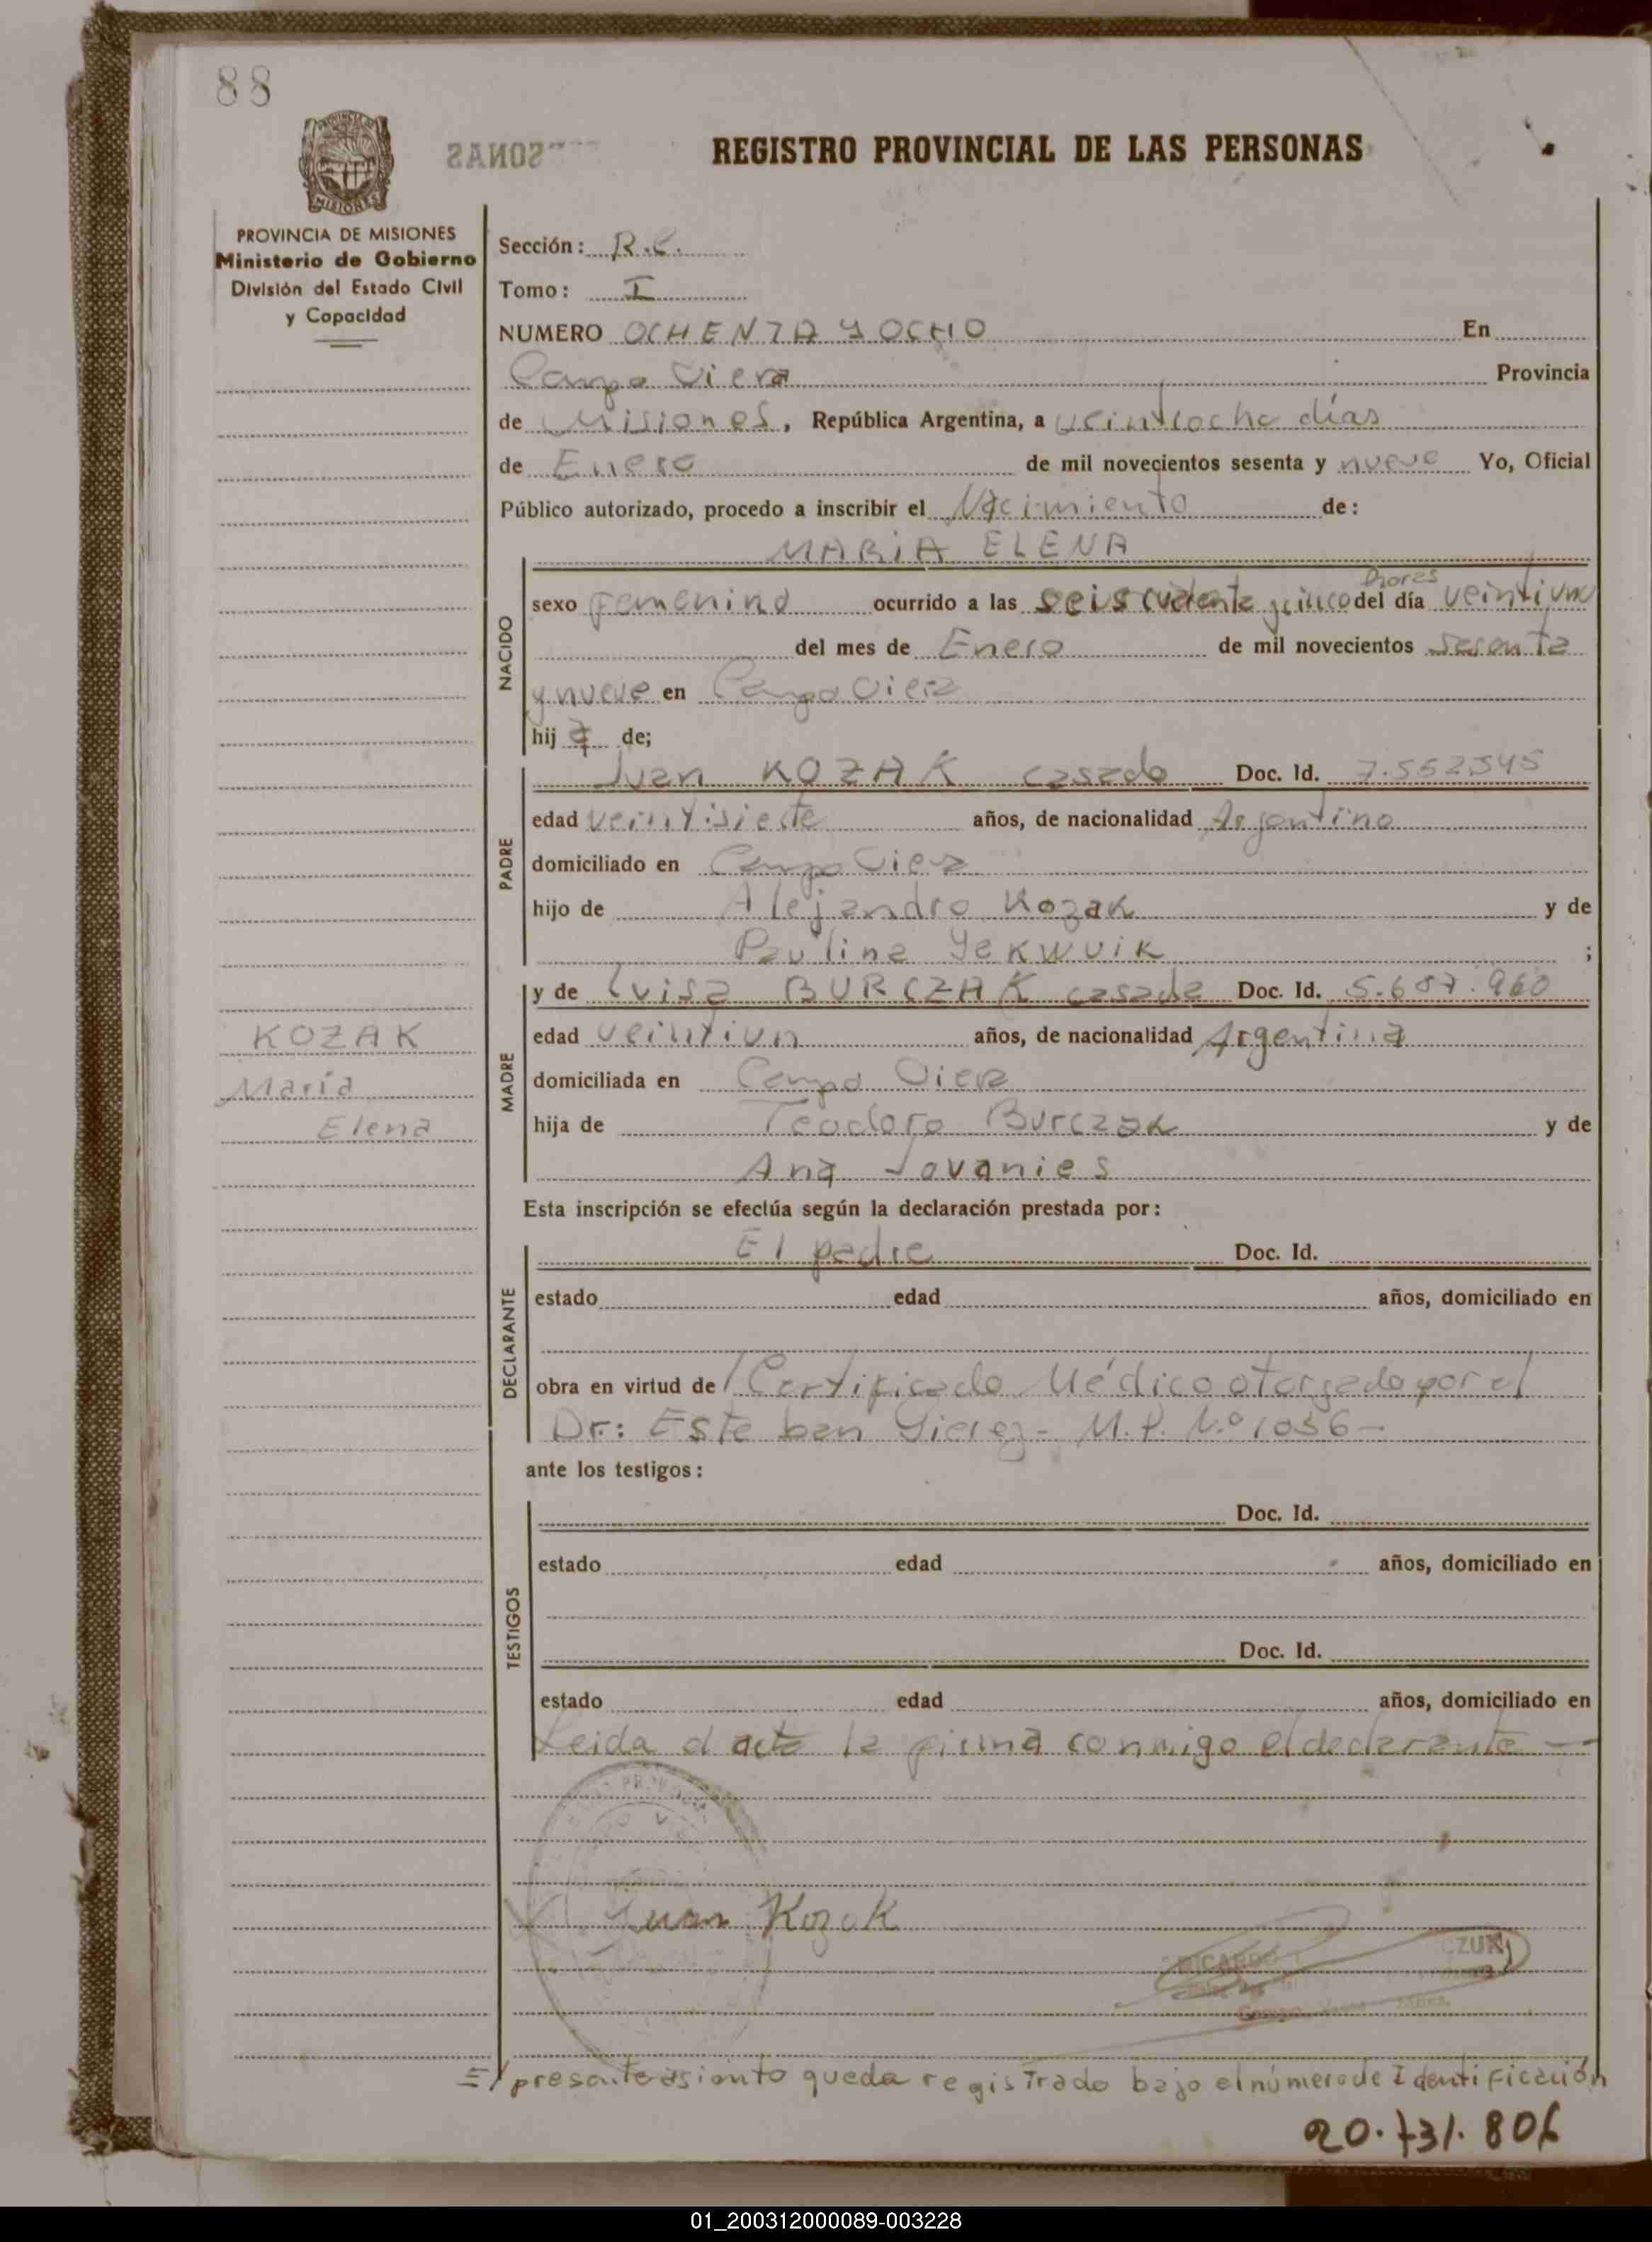 88
REGISTRO PROVINCIAL DE LAS PERSONAS
MISIONES
PROVINCIA DE MISIONES
Ministerio de Gobierno
División del Estado Civil
y Capacidad
Sección: R.C.
Tomo: I
NUMERO OCHENTA Y OCHO En
Campo Viera Provincia
de Misiones, República Argentina, a veintiocho días
de Enero de mil novecientos sesenta y nueve Yo, Oficial
Público autorizado, procedo a inscribir el Nacimiento de:
MARIA ELENA
NACIDO
horas
sexo femenino ocurrido a las seis cuarenta y cinco del día veintiuno
del mes de Enero de mil novecientos sesenta
y nueve en Campo Viera
hij a de;
PADRE
Juan KOZAK casado Doc. Id. 7.552.545
edad veintisiete años, de nacionalidad Argentino
domiciliado en Campo Viera
hijo de Alejandro Kozak y de
Paulina ;
MADRE
y de Luisa BURCZAK casada Doc. Id. 5.687.960
edad veintiun años, de nacionalidad Argentina
domiciliada en Campo Viera
hija de Teodoro Burczak y de
Ana Jovanies
KOZAK
Maria
Elena
Esta inscripción se efectúa según la declaración prestada por:
DECLARANTE
El padre Doc. Id.
estado edad años, domiciliado en
obra en virtud de Certificado Médico otorgado por el
Dr: Esteban M.P. Nº 1056-
ante los testigos:
TESTIGOS
Doc. Id.
estado edad años, domiciliado en
Doc. Id.
estado edad años, domiciliado en
Leida el acta la firma conmigo el declarante
Juan Kozak
RICARDO CZUK
Campo
El presente asiento queda registrado bajo el número de Identificación
20.731.806
01_200312000089-003228